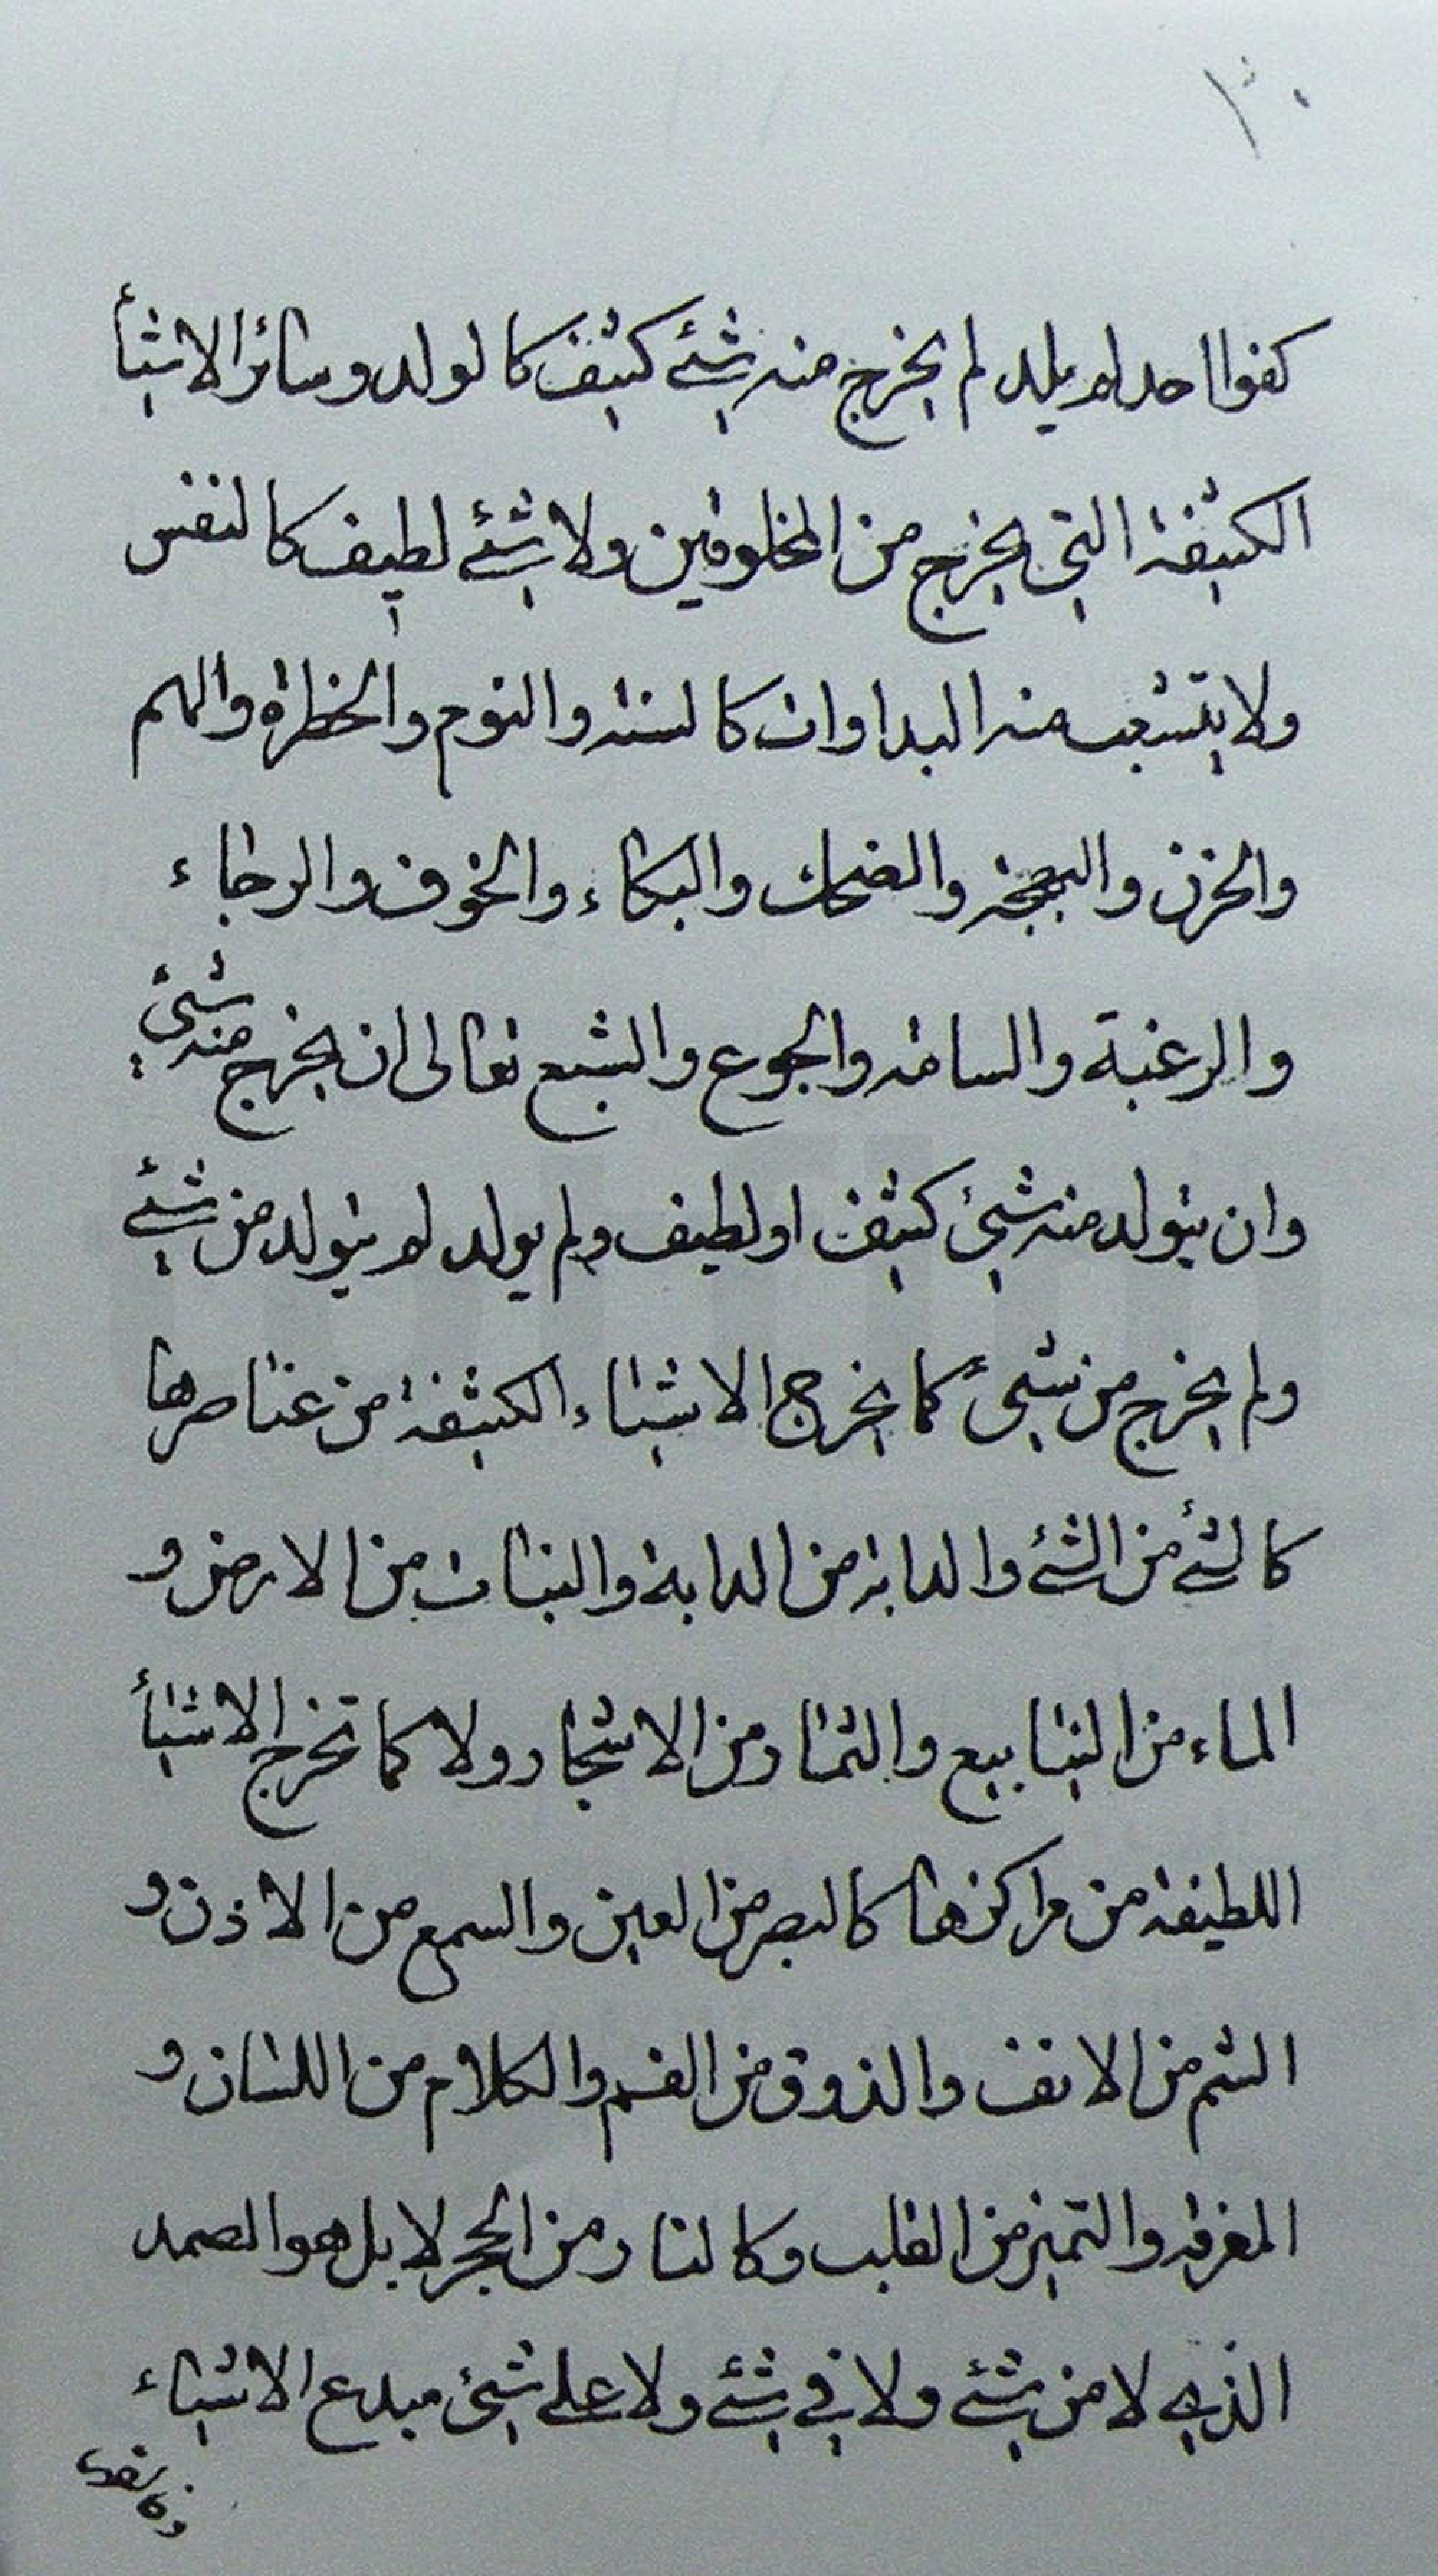 كفوا احد لم يلد لم يخرج منه شئ كثيف كالولد وسائر الاشيأ
الكثيفة التي يخرج من المخلوقين ولا شئ لطيف كالنفس
ولا يتشعب منه البداوات كالسنة والنوم والخطرة والهم
والحزن والبهجة والضحك والبكاء والخوف والرجاء
والرغبة والسامة والجوع والشبع تعالى ان يخرج منه شئ
وان يتولد منه شئ كثيف او لطيف ولم يولد لم يتولد من شئ
ولم يخرج من شئ كما يخرج الاشياء الكثيفة من عناصرها
كالشئ من الشئ والدابة من الدابة والنبات من الارض و
الماء من الينابيع والثمار من الاشجار ولا كما تخرج الاشيأ
اللطيفة من مراكزها كالبصر من العين والسمع من الاذن و
الشم من الانف والذوق من الفم والكلام من اللسان و
المعرفة والتميز من القلب وكالنار من الحجر لا بل هو الصمد
الذي لا من شئ ولا في شئ ولا على شئ مبدع الاشياء